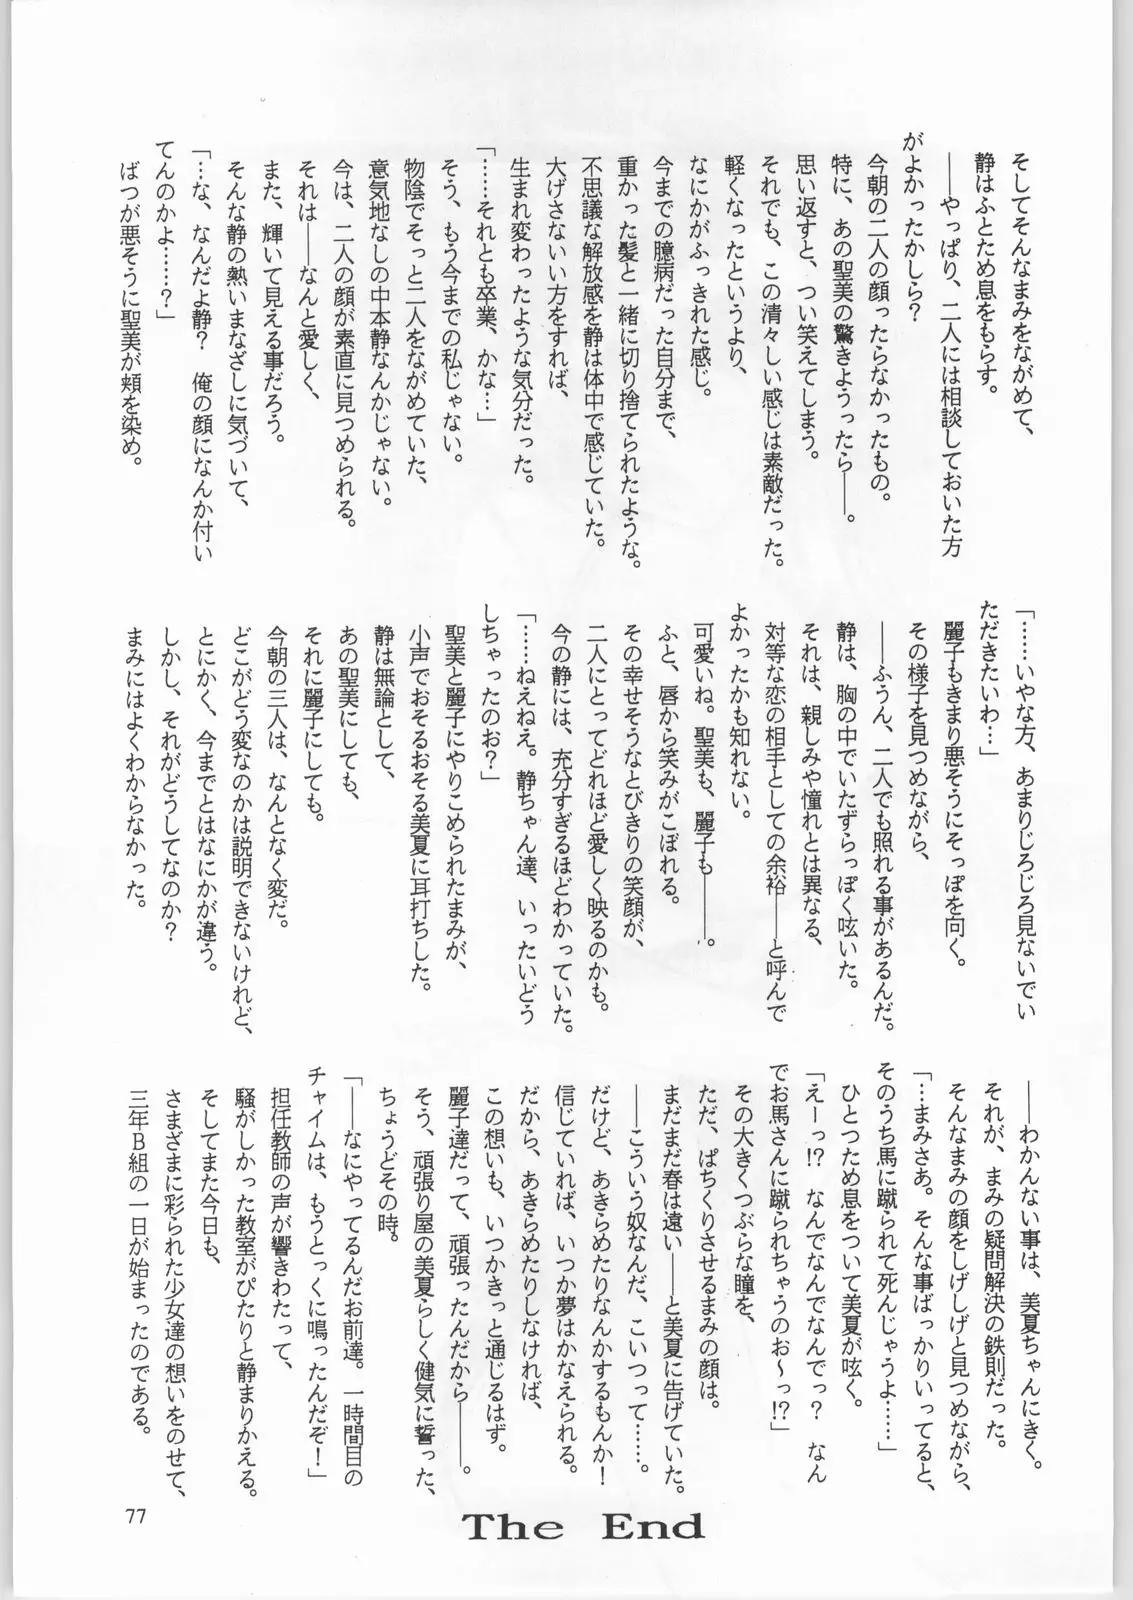 そしてそんなまみをながめて、
静はふとため息をもらす。
――やっぱり、二人には相談しておいた方
がよかったかしら？
今朝の二人の顔ったらなかったもの。
特に、あの聖美の驚きようったら――。
思い返すと、つい笑えてしまう。
それでも、この清々しい感じは素敵だった。
軽くなったというより、
なにかがふっきれた感じ。
今までの臆病だった自分まで、
重かった髪と一緒に切り捨てられたような。
不思議な解放感を静は体中で感じていた。
大げさないい方をすれば、
生まれ変わったような気分だった。
「……それとも卒業、かな…」
そう、もう今までの私じゃない。
物陰でそっと二人をながめていた、
意気地なしの中本静なんかじゃない。
今は、二人の顔が素直に見つめられる。
それは――なんと愛しく、
また、輝いて見える事だろう。
そんな静の熱いまなざしに気づいて、
「…な、なんだよ静？　俺の顔になんか付い
てんのかよ……？」
ばつが悪そうに聖美が頬を染め。
「……いやな方、あまりじろじろ見ないでい
ただきたいわ…」
麗子もきまり悪そうにそっぽを向く。
その様子を見つめながら、
――ふうん、二人でも照れる事があるんだ。
静は、胸の中でいたずらっぽく呟いた。
それは、親しみや憧れとは異なる、
対等な恋の相手としての余裕――と呼んで
よかったかも知れない。
可愛いね。聖美も、麗子も――。
ふと、唇から笑みがこぼれる。
その幸せそうなとびきりの笑顔が、
二人にとってどれほど愛しく映るのかも。
今の静には、充分すぎるほどわかっていた。
「……ねえねえ。静ちゃん達、いったいどう
しちゃったのお？」
聖美と麗子にやりこめられたまみが、
小声でおそるおそる美夏に耳打ちした。
静は無論として、
あの聖美にしても、
それに麗子にしても。
今朝の三人は、なんとなく変だ。
どこがどう変なのかは説明できないけれど、
とにかく、今までとはなにかが違う。
しかし、それがどうしてなのか？
まみにはよくわからなかった。
――わかんない事は、美夏ちゃんにきく。
それが、まみの疑問解決の鉄則だった。
そんなまみの顔をしげしげと見つめながら、
「…まみさあ。そんな事ばっかりいってると、
そのうち馬に蹴られて死んじゃうよ……」
ひとつため息をついて美夏が呟く。
「えーっ!?　なんでなんでなんでっ？　なん
でお馬さんに蹴られちゃうのお～っ!?」
その大きくつぶらな瞳を、
ただ、ぱちくりさせるまみの顔は。
まだまだ春は遠い――と美夏に告げていた。
――こういう奴なんだ、こいつって……。
だけど、あきらめたりなんかするもんか！
信じていれば、いつか夢はかなえられる。
だから、あきらめたりしなければ、
この想いも、いつかきっと通じるはず。
麗子達だって、頑張ったんだから――。
そう、頑張り屋の美夏らしく健気に誓った、
ちょうどその時。
「――なにやってるんだお前達。一時間目の
チャイムは、もうとっくに鳴ったんだぞ！」
担任教師の声が響きわたって、
騒がしかった教室がぴたりと静まりかえる。
そしてまた今日も、
さまざまに彩られた少女達の想いをのせて、
三年Ｂ組の一日が始まったのである。
The End
77